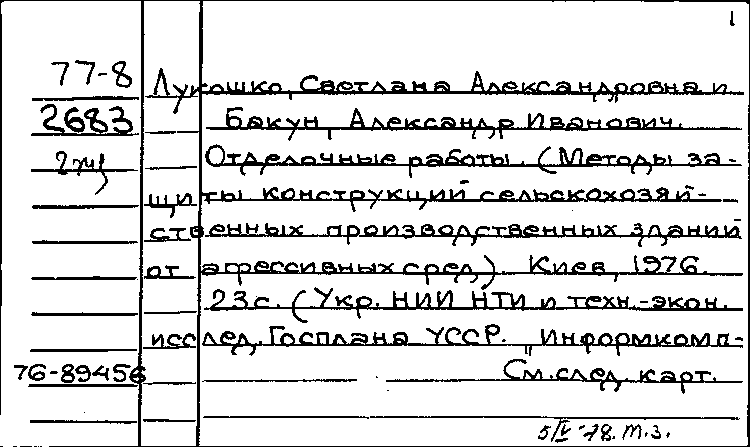 1
77-8 Лукошко, Светлана Александровна и
2683 Бакун, Александр Иванович.
2 экз Отделочные работы. (Методы за-
щиты конструкций сельскохозяй-
ственных производственных зданий
от агрессивных сред). Киев, 1976.
23с. (Укр. НИИ НТИ и техн.-экон.
исслед. Госплана УССР. „Информкомп-
76-89456 См. след. карт.
5/IV-78. т.з.